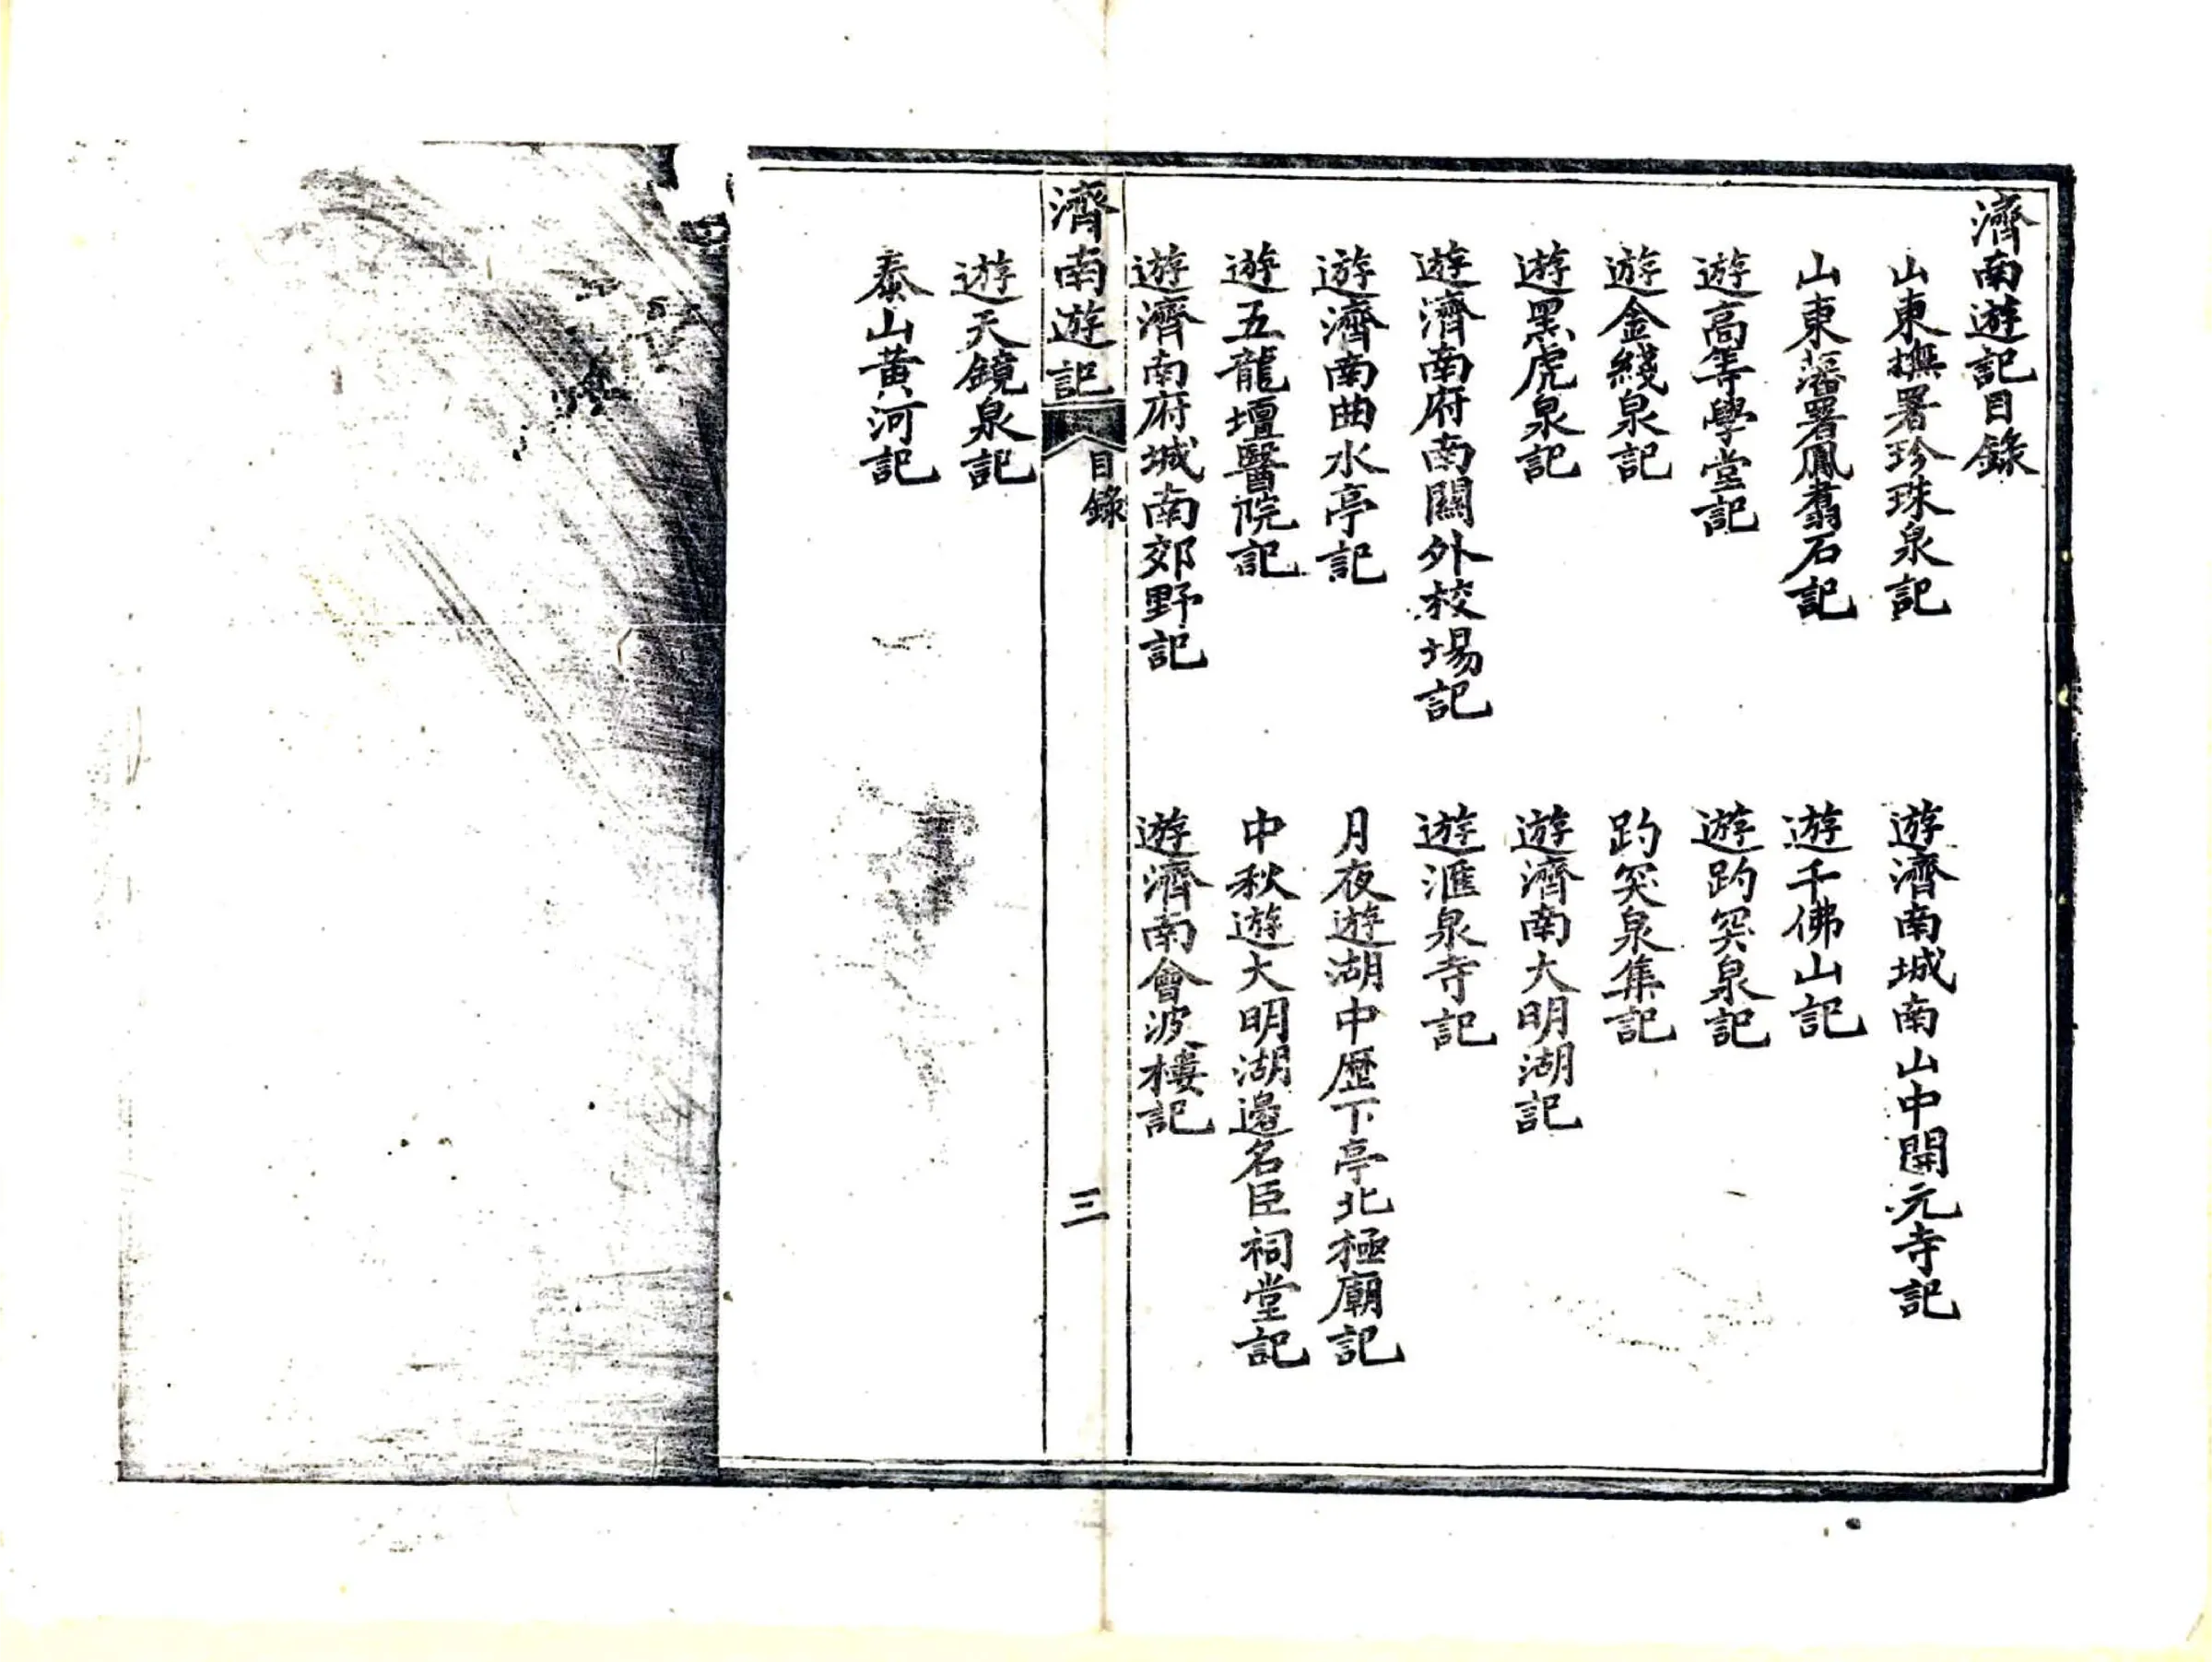 濟南遊記目錄
山東撫署珍珠泉記
遊濟南城南山中開元寺記
山東藩署鳳翥石記
遊千佛山記
遊高等學堂記
遊趵突泉記
遊金綫泉記
趵突泉集記
遊黑虎泉記
遊濟南大明湖記
遊濟南府南關外校場記
遊滙泉寺記
遊濟南曲水亭記
月夜遊湖中歷下亭北極廟記
遊五龍壇醫院記
中秋遊大明湖邊名臣祠堂記
遊濟南府城南郊野記
遊濟南會波樓記
濟南遊記
目錄
三
遊天鏡泉記
泰山黃河記